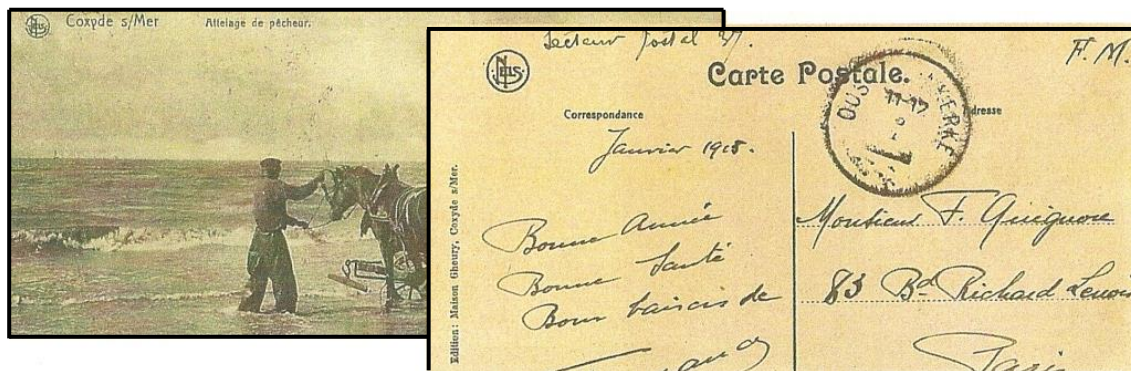 Coxyde s/Mer Attelage de pêcheur.
Secteur Postal 
F. M.
NELS
Carte Postale.
Correspondance
Adresse
11-12
Janvier 1915.
Edition: Maison Gheury, Coxyde s/Mer.
Bonne Année
Bonne Santé
Bons baisers de
Monsieur F.
83 Bd Richard Lenoir
Paris